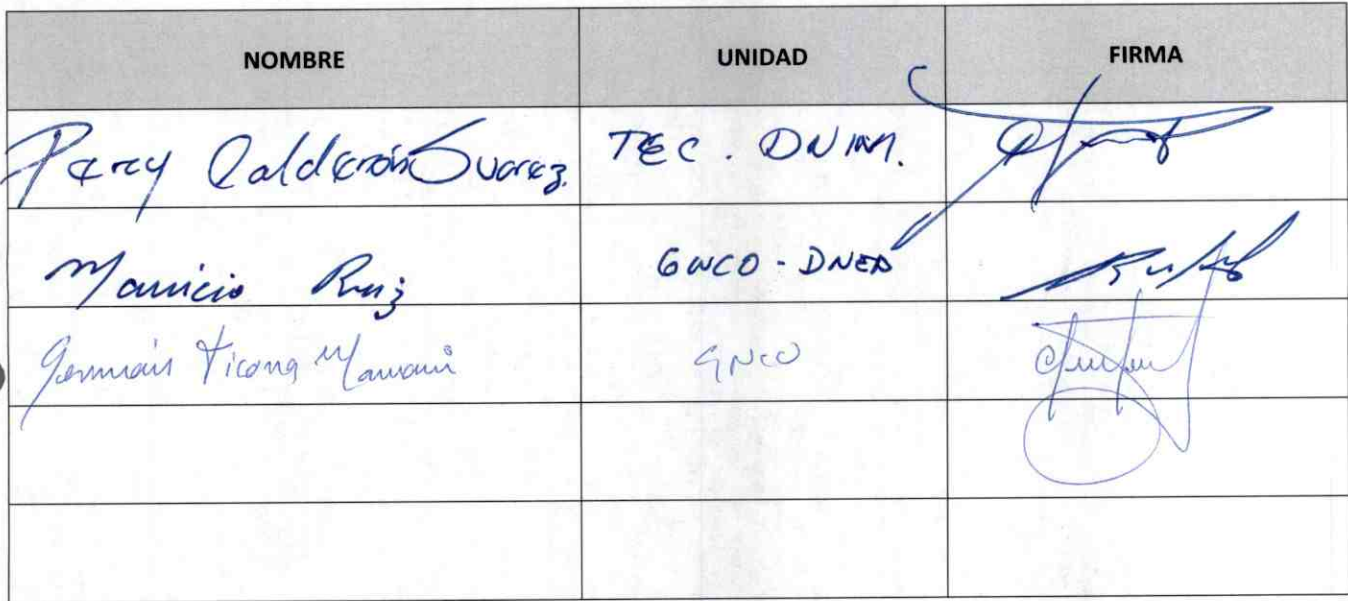 NOMBRE UNIDAD FIRMA
Percy Calderón Suarez. TEC. DNIM.
Mauricio Ruiz GNCO - DNED
Germán Ticona Mamani GNCO